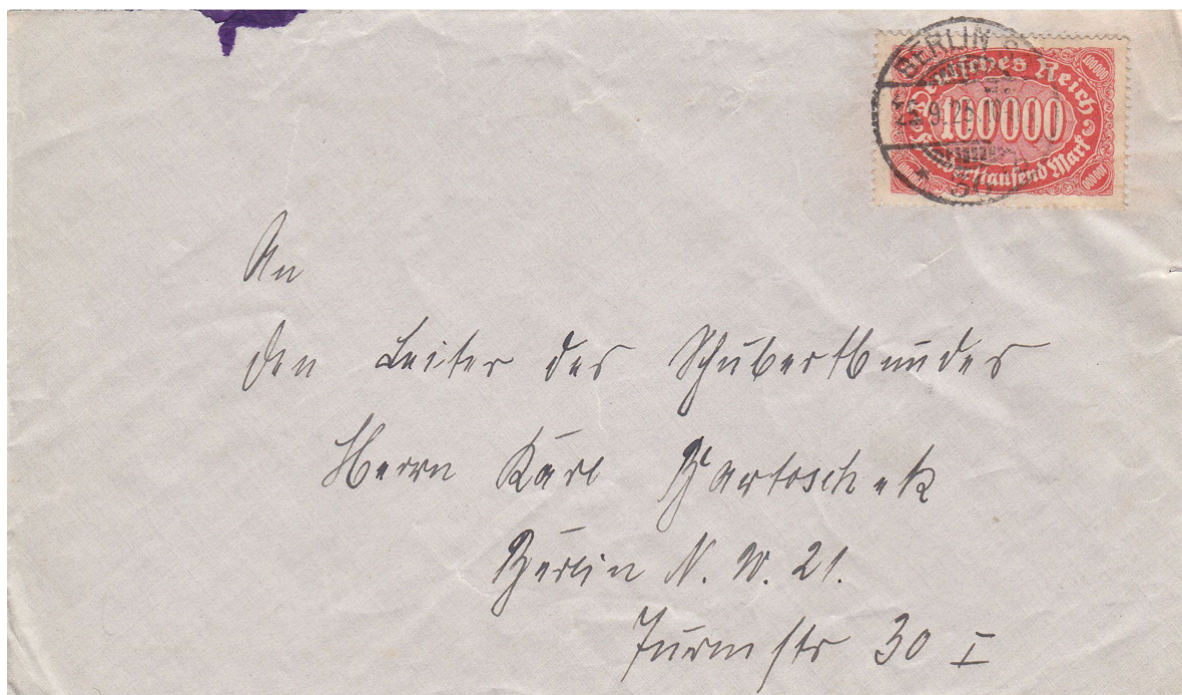 BERLIN
Deutsches Reich
100000
100000
Hunderttausend Mark
100000
100000
An
den Leiter des Schubertbundes
Herrn Karl Bartoschek
Berlin N. W. 21.
Turmstr 30 I